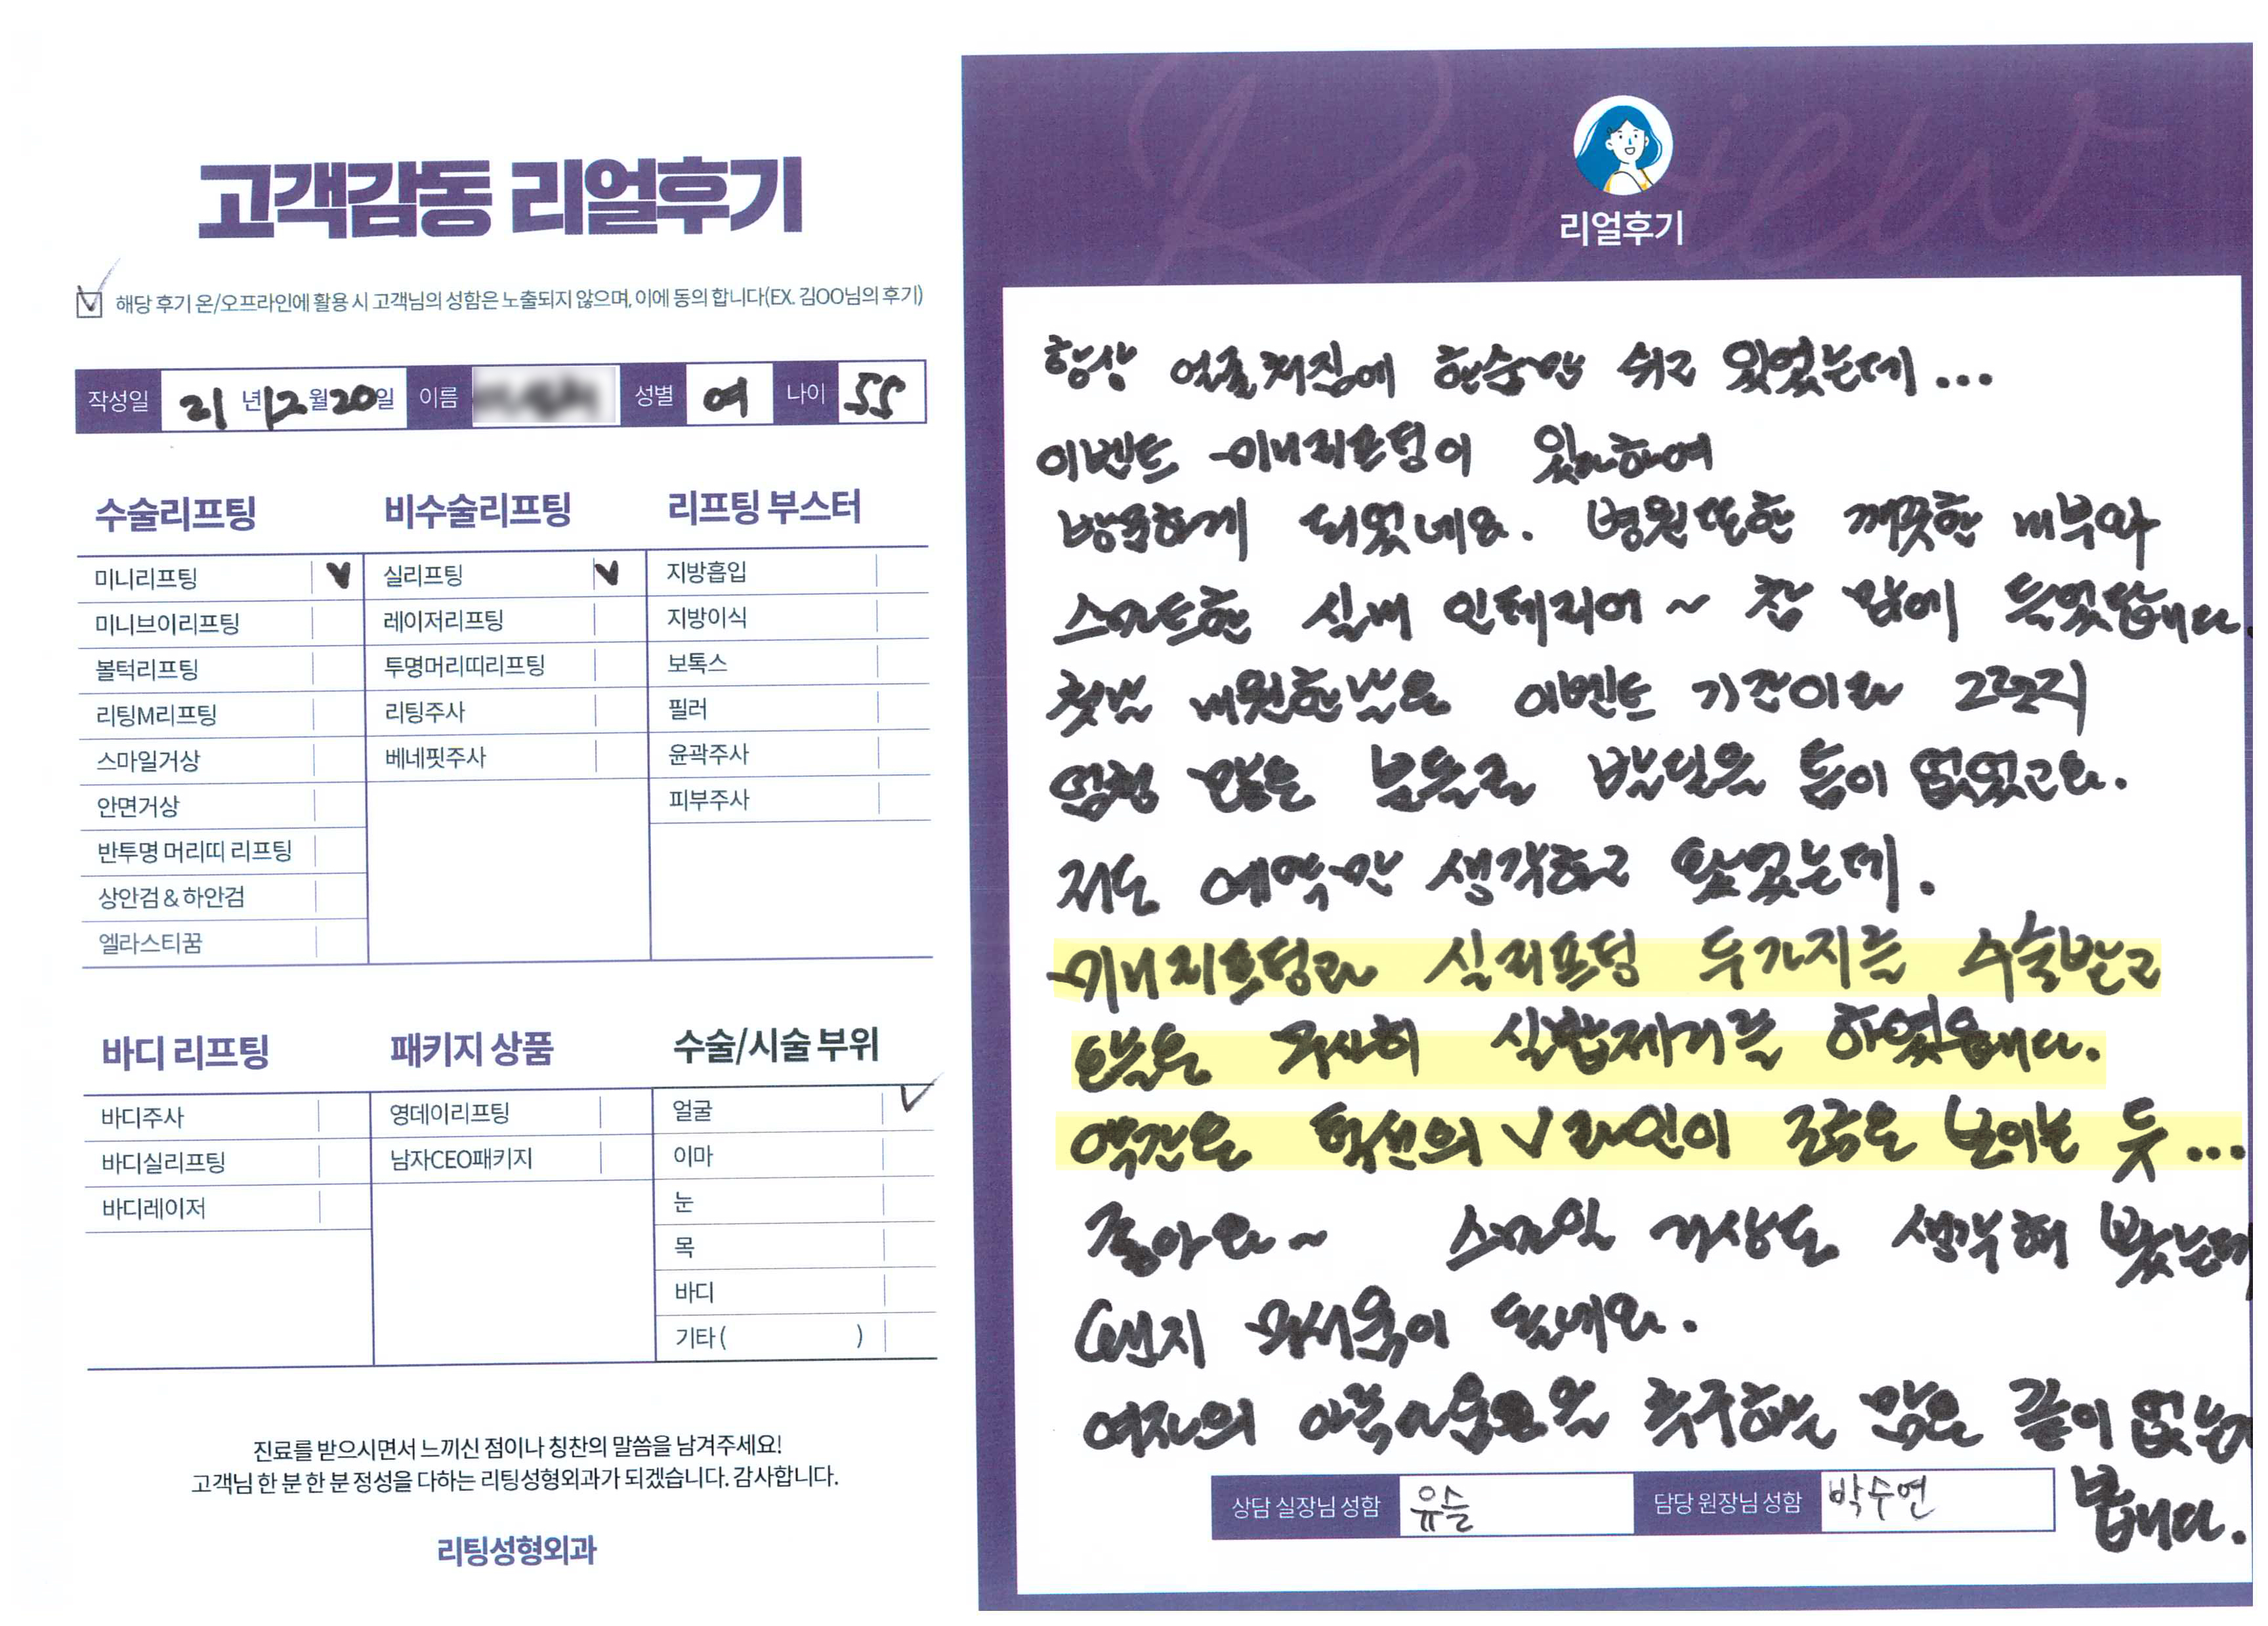 고객감동 리얼후기
해당 후기 온/오프라인에 활용 시 고객님의 성함은 노출되지 않으며, 이에 동의 합니다(EX. 김OO님의 후기)
작성일 21년 12월 20일 이름 성별 여 나이 55
수술리프팅
미니리프팅
미니브이리프팅
볼턱리프팅
리팅M리프팅
스마일거상
안면거상
반투명 머리띠 리프팅
상안검 & 하안검
엘라스티꿈
비수술리프팅
실리프팅
레이저리프팅
투명머리띠리프팅
리팅주사
베네핏주사
리프팅 부스터
지방흡입
지방이식
보톡스
필러
윤곽주사
피부주사
바디 리프팅
바디주사
바디실리프팅
바디레이저
패키지 상품
영데이리프팅
남자CEO패키지
수술/시술 부위
얼굴
이마
눈
목
바디
기타 ( )
진료를 받으시면서 느끼신 점이나 칭찬의 말씀을 남겨주세요!
고객님 한 분 한 분 정성을 다하는 리팅성형외과가 되겠습니다. 감사합니다.
리팅성형외과
Review
리얼후기
항상 얼굴 처짐에 한숨만 쉬고 있었는데...
이벤트 미니리프팅이 있다하여
방문하게 되었네요. 병원또한 깨끗한 내부와
스마트한 실내 인테리어~ 참 맘에 들었답니다.
첫날 내원한날은 이벤트 기간이라 그런지
엄청 많은 분들로 발딛을 틈이 없었고요.
저도 예약만 생각하고 왔었는데.
미니리프팅과 실리프팅 두가지를 수술받고
오늘은 무사히 실밥제거를 하였읍니다.
약간은 턱선의 V라인이 조금은 보이는 듯...
좋아요~ 스마일 거상도 생각해 봤는데
왠지 무서움이 드네요.
여자의 아름다움을 추구하는 맘은 끝이 없는가
봅니다.
상담 실장님 성함 유슬 담당 원장님 성함 박수연